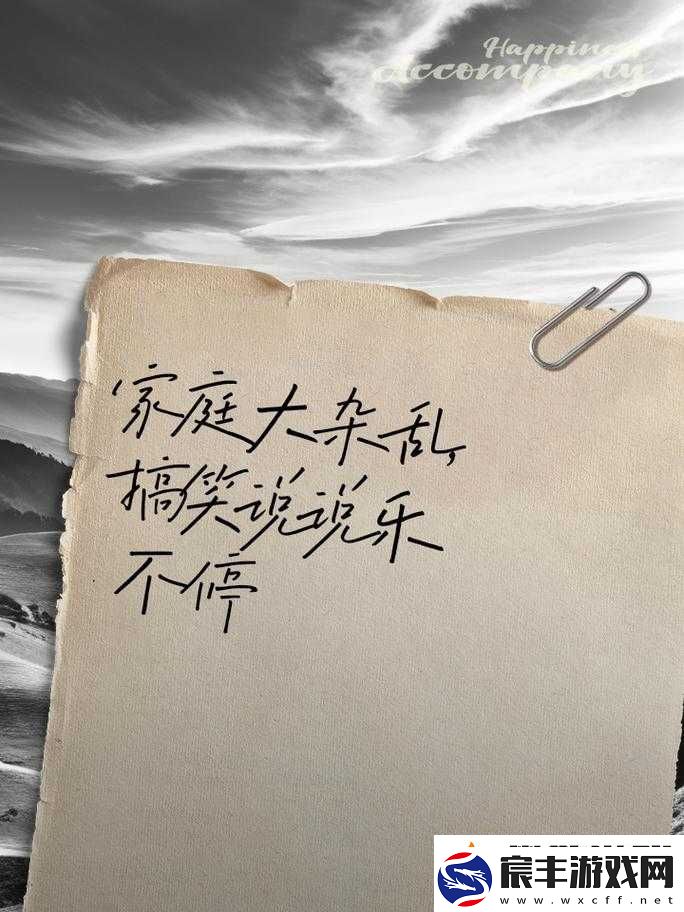 Happiness
Accompany
家庭大杂乱,
搞笑说说乐
不停
宸丰游戏网
www.wxcff.net